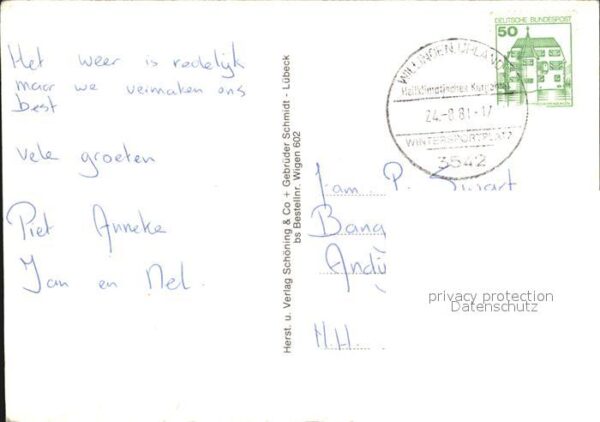 Het weer is redelijk
maar we vermaken ons
best
vele groeten
Piet Anneke
Jan en Nel.
Herst. u. Verlag Schöning & Co + Gebrüder Schmidt - Lübeck
bs Bestellnr. Wigen 602
DEUTSCHE BUNDESPOST
50
WILLINGEN, UPLAND
Heilklimatischer Kurort
24.-8.81-17
WINTERSPORTPLATZ
3542
Fam. P. Swart
Bang
Andij
N.H.
privacy protection
Datenschutz